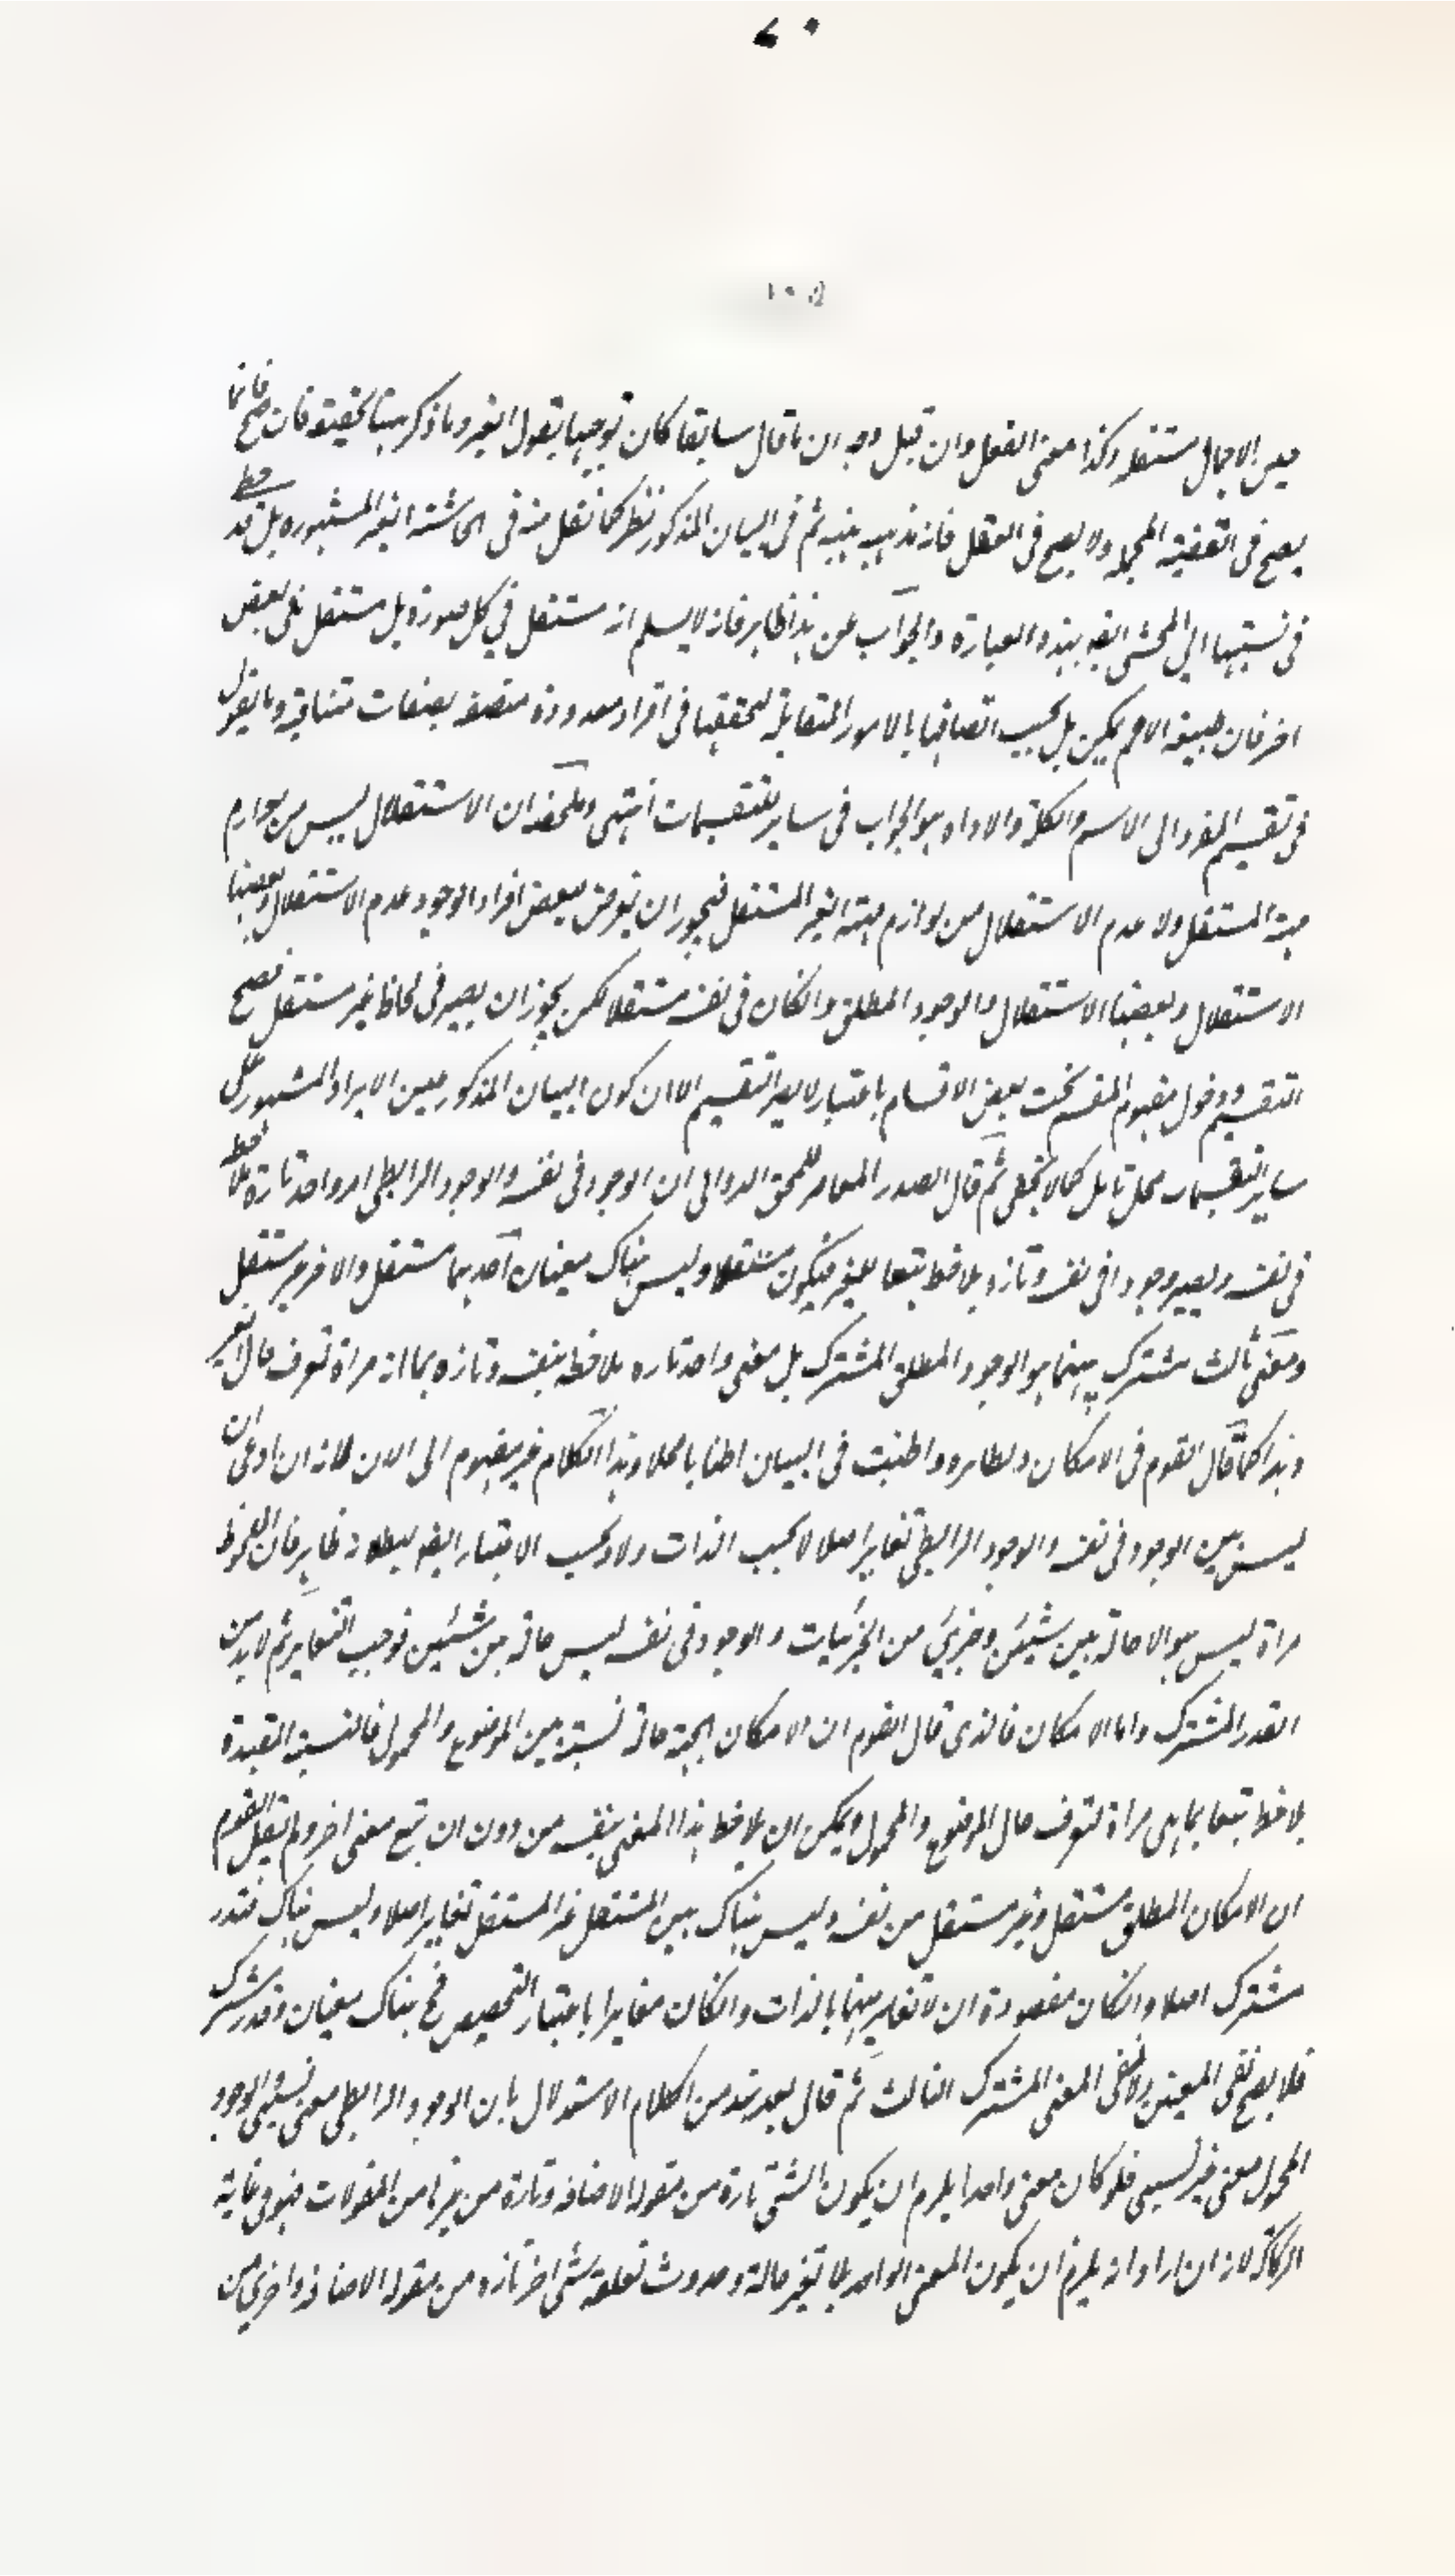 ٧٠
١٠٥
حين الاجمال مستقلة وكذا معنى الفعل وان قيل وجه ان ما قال سابقا كان توجيها بقول الغير وما ذكر ههنا تحقيقه فانما
يصح في القضية المجملة ولا يصح في العقل فانه مذهب ثم في البيان المذكور نظر كما نقل منه في الحاشية الغير المشهورة بل قد
في نسبتها الى المحشي ايضا بهذه العبارة والجواب عن هذا ظاهر فانه لا يسلم انه مستقل في كل صورة بل مستقل في بعض
اخر فان طبيعة الاعم يمكن بل يجب اتصافها بالامور المتقابلة لتحققها في افراد معدودة متصفة بصفات متنافية وما يقول
في تقسيم المفرد الى الاسم والكلمة والاداة هو الجواب في ساير التقسيمات انتهى وملخصه ان الاستقلال ليس من لوازم
مهية المستقل ولا عدم الاستقلال من لوازم مهية الغير المستقل فيجوز ان يعرض لبعض افراد الوجود عدم الاستقلال وبعضها
الاستقلال وبعضها الاستقلال والوجود المطلق وانكان في نفسه مستقلا لكن يجوز ان يصير في لحاظ غير مستقل فصح
التقسيم ودخول مفهوم المقسم تحت بعض الاقسام باعتبار لا يضر التقسيم الا ان كون البيان المذكور مبين الايراد المشهور على
ساير التقسيمات محل تامل كما لا يخفى ثم قال الصدر المعاصر للمحقق الدواني ان الوجود في نفسه والوجود الرابطي امر واحد تارة يلاحظ
في نفسه ويصير وجودا في نفسه وتارة يلاحظ تبعا للغير فيكون مستقلا وليس هناك معنيان احدهما مستقل والاخر غير مستقل
ومعنى ثالث مشترك بينهما هو الوجود المطلق المشترك بل معنى واحد تارة يلاحظ بنفسه وتارة بما انه مراة لتعرف حال الغير
وهذا كما قال القوم في الامكان ونظائره واطنبت في البيان اطنابا مملا وهذا الكلام غير مفهوم الى الان فانه ان ادعى ان
ليس بين الوجود في نفسه والوجود الرابطي تغاير اصلا لا بحسب الذات ولا بحسب الاعتبار ايضا فبطلانه ظاهر فان الملحوظ
مراة ليس هو الا حالة بين شيئين وجزئي من الجزئيات والوجود في نفسه ليس حالة بين شيئين فوجب التغاير ثم لا بد من
القدر المشترك واما الامكان فالذي قال القوم ان الامكان الجهة حالة نسبة بين الموضوع والمحمول فالنسبة المقيدة
يلاحظ تبعا بما هي مراة لتعرف حال الموضوع والمحمول ويمكن ان يلاحظ هذا المعنى بنفسه من دون ان يتبع معنى اخر ولم يقل القوم
ان الامكان المطلق مستقل وغير مستقل من نفسه وليس هناك بين المستقل غير المستقل تغاير اصلا وليس هناك قدر
مشترك اصلا وانكان مقصوده ان لا تغاير بينهما بالذات وانكان مغايرا باعتبار التحصيص فح هناك معنيان وقدر مشترك
فلا يصح نفي المعنيين ولا نفي المعنى المشترك الثالث ثم قال بعد نبذ من الكلام الاستدلال بان الوجود الرابطي معنى نسبي والوجود
المحمول معنى غير نسبي فلو كان معنى واحدا يلزم ان يكون الشئ تارة من مقولة الاضافة وتارة من غيرها من المقولات فهو في غاية
الركاكة لانه ان اراد انه يلزم ان يكون المعنى الواحد بلا تغير حالة وحدوث تعلقه بشئ اخر تارة من مقولة الاضافة واخرى من